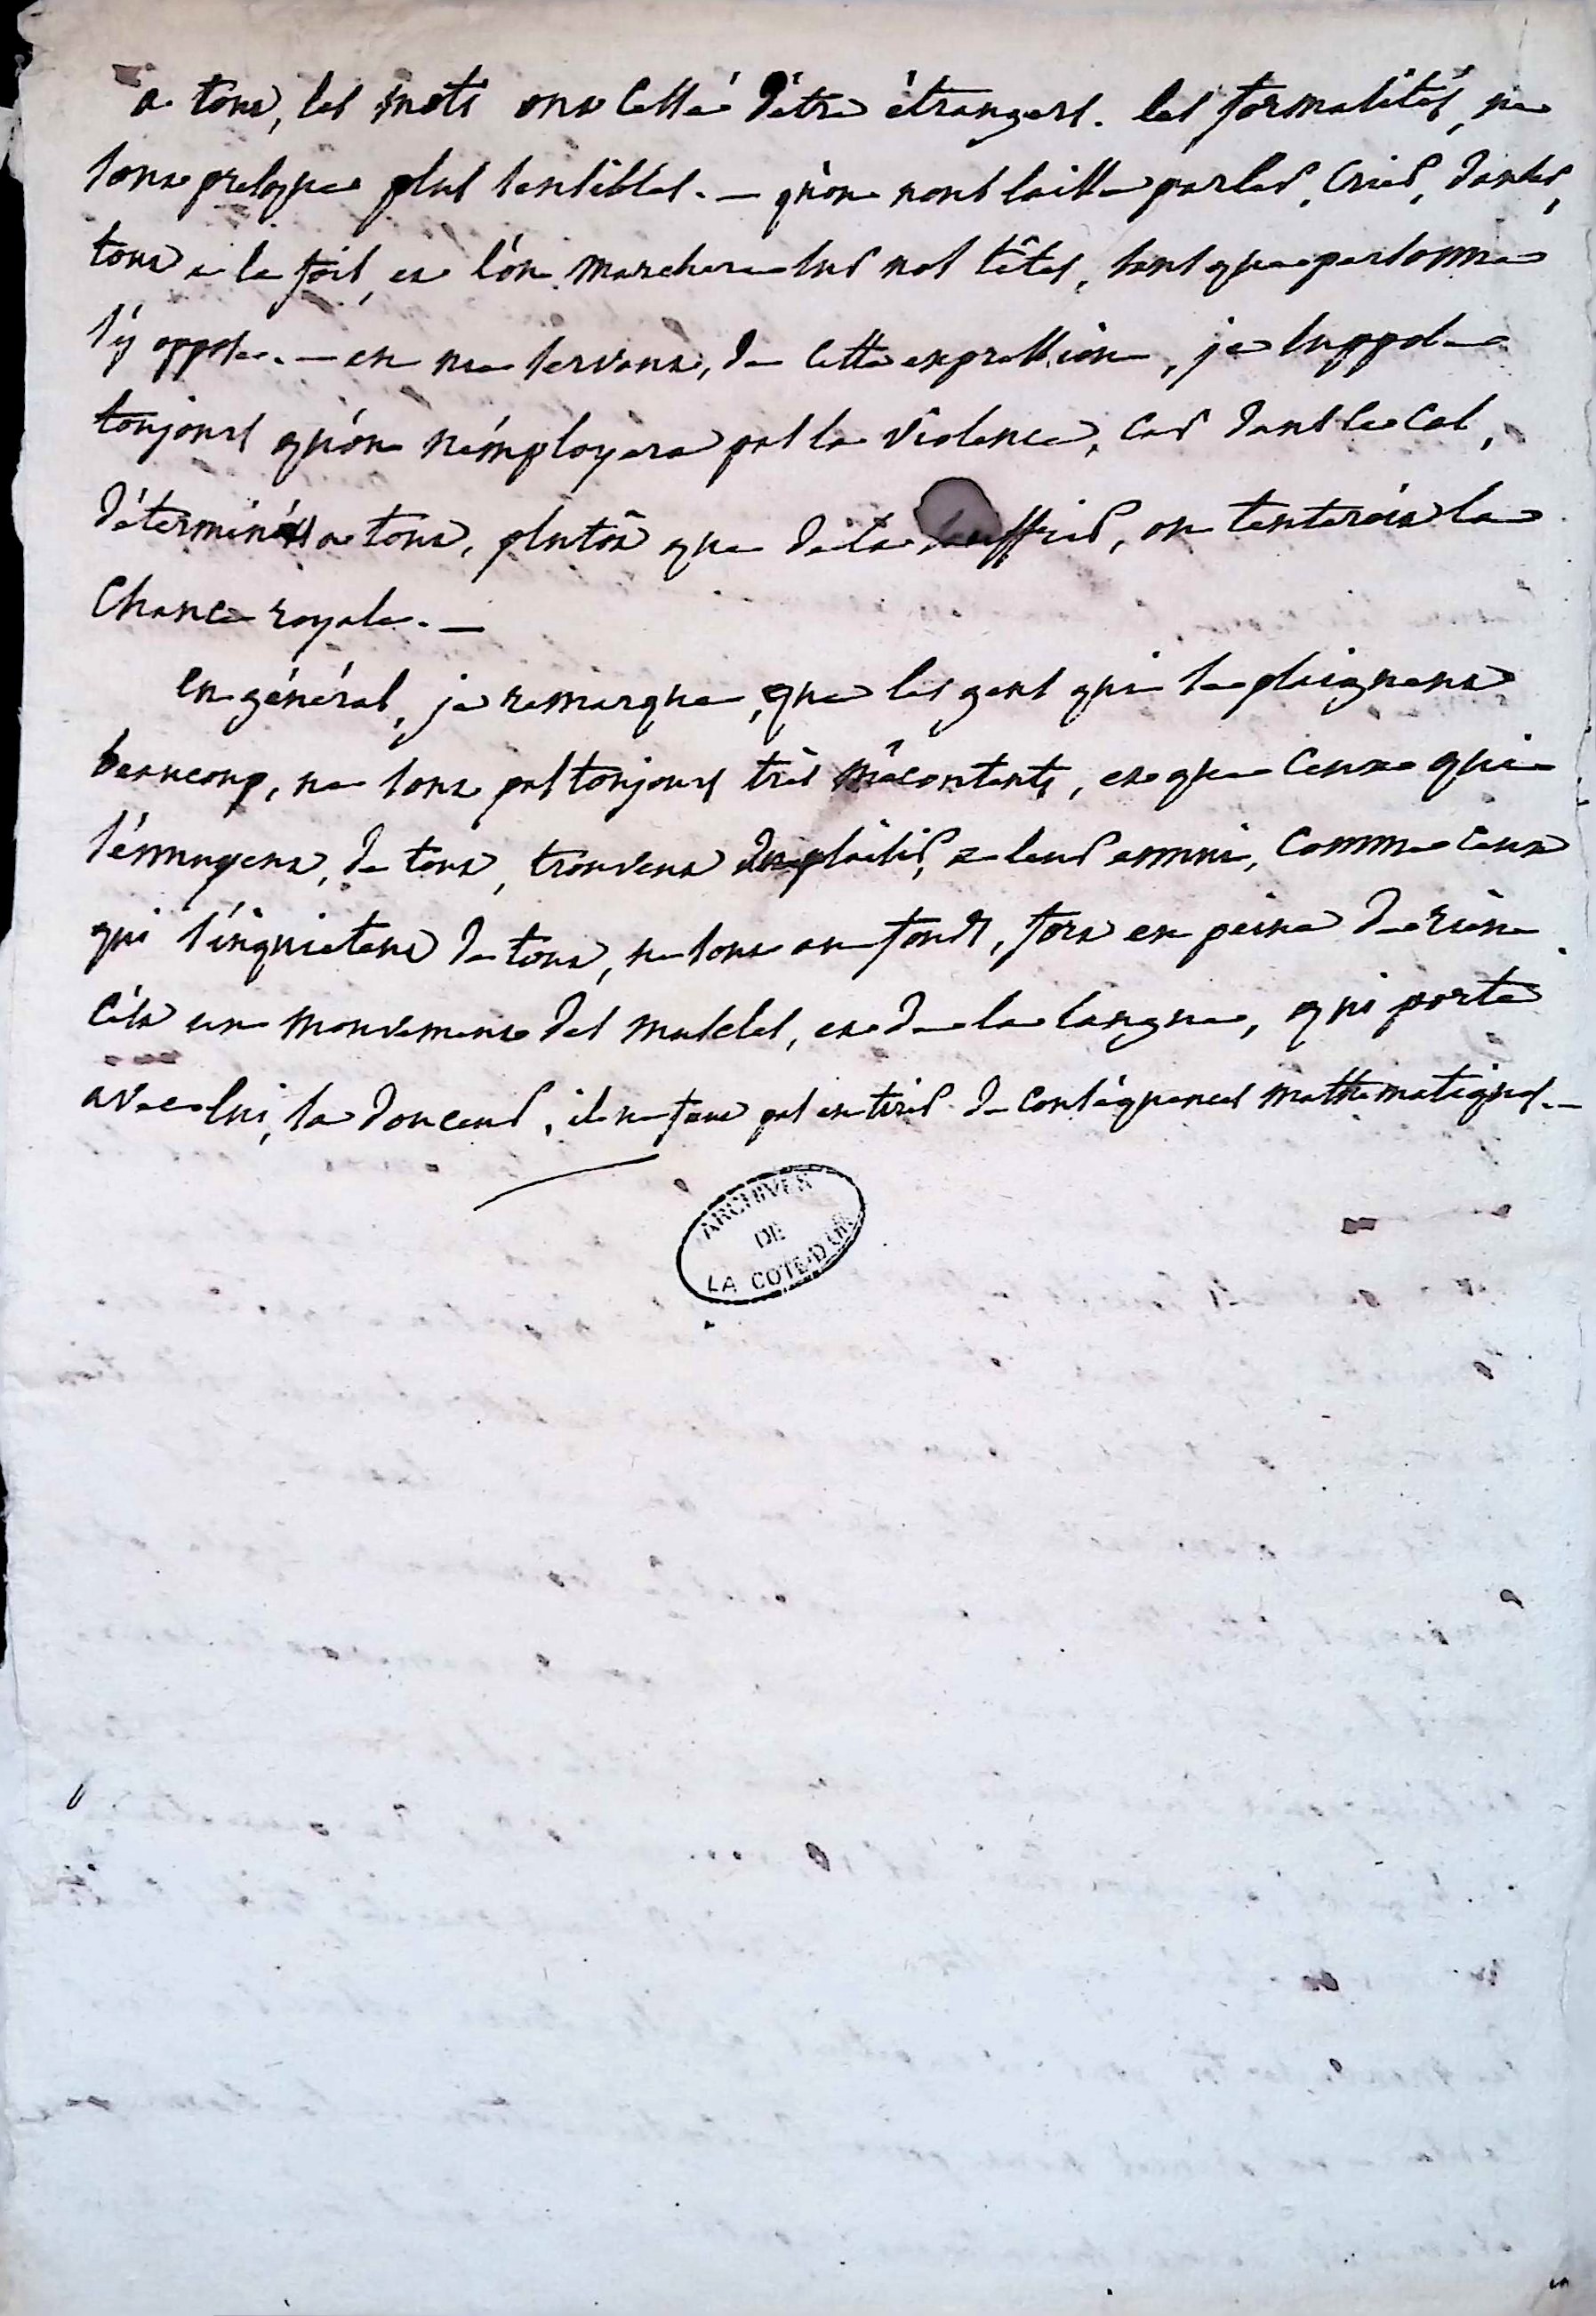 a tout, les mots ont cessé d'être étrangers. les formalités, ne
sont presque plus sensibles. — qu'on nous laisse parler, crier, danser,
tout a la fois, et l'on marchera sur nos têtes, sans que personne
s'y oppose. — en me servant, de cette expression, je suppose
toujours qu'on n'employera pas la violence, car dans ce cas,
déterminés a tout, plutôt que de la souffrir, on tenteroit la
chance royale. —
en général, je remarque, que les gens qui se plaignent
beaucoup, ne sont pas toujours très mécontents, et que ceux qui
s'ennuyent, de tout, trouvent du plaisir, a leur ennui, comme ceux
qui s'inquietent de tout, ne sont au fond, fort en peine de rien.
c'est un mouvement des muscles, et de la langue, qui porte
avec lui, sa douceur, il ne faut pas en tirer de conséquences mathematiques. —
ARCHIVES
DE
LA COTE-D'OR